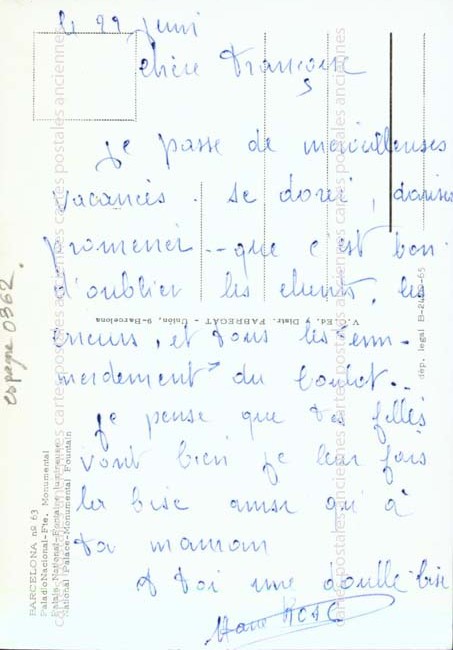 le 22 juin
chère Françoise
je passe de merveilleuses
vacances. Se dorer, danser
promener -- que c'est bon
d'oublier les clients, les
erreurs, et tous les em-
merdements du boulot..
je pense que tes filles
vont bien je leur fais
la bise ainsi qu'à
ta maman
et toi une double bise
BARCELONA nº 63
Palacio Nacional-Fte. Monumental
Palais National-Fontaine lumineuse
National Palace-Monumental Fountain
V. Ed. y Distr. FABREGAT - Unión, 9-Barcelona
dep. legal B-
espagne 0362.
cartes postales anciennes